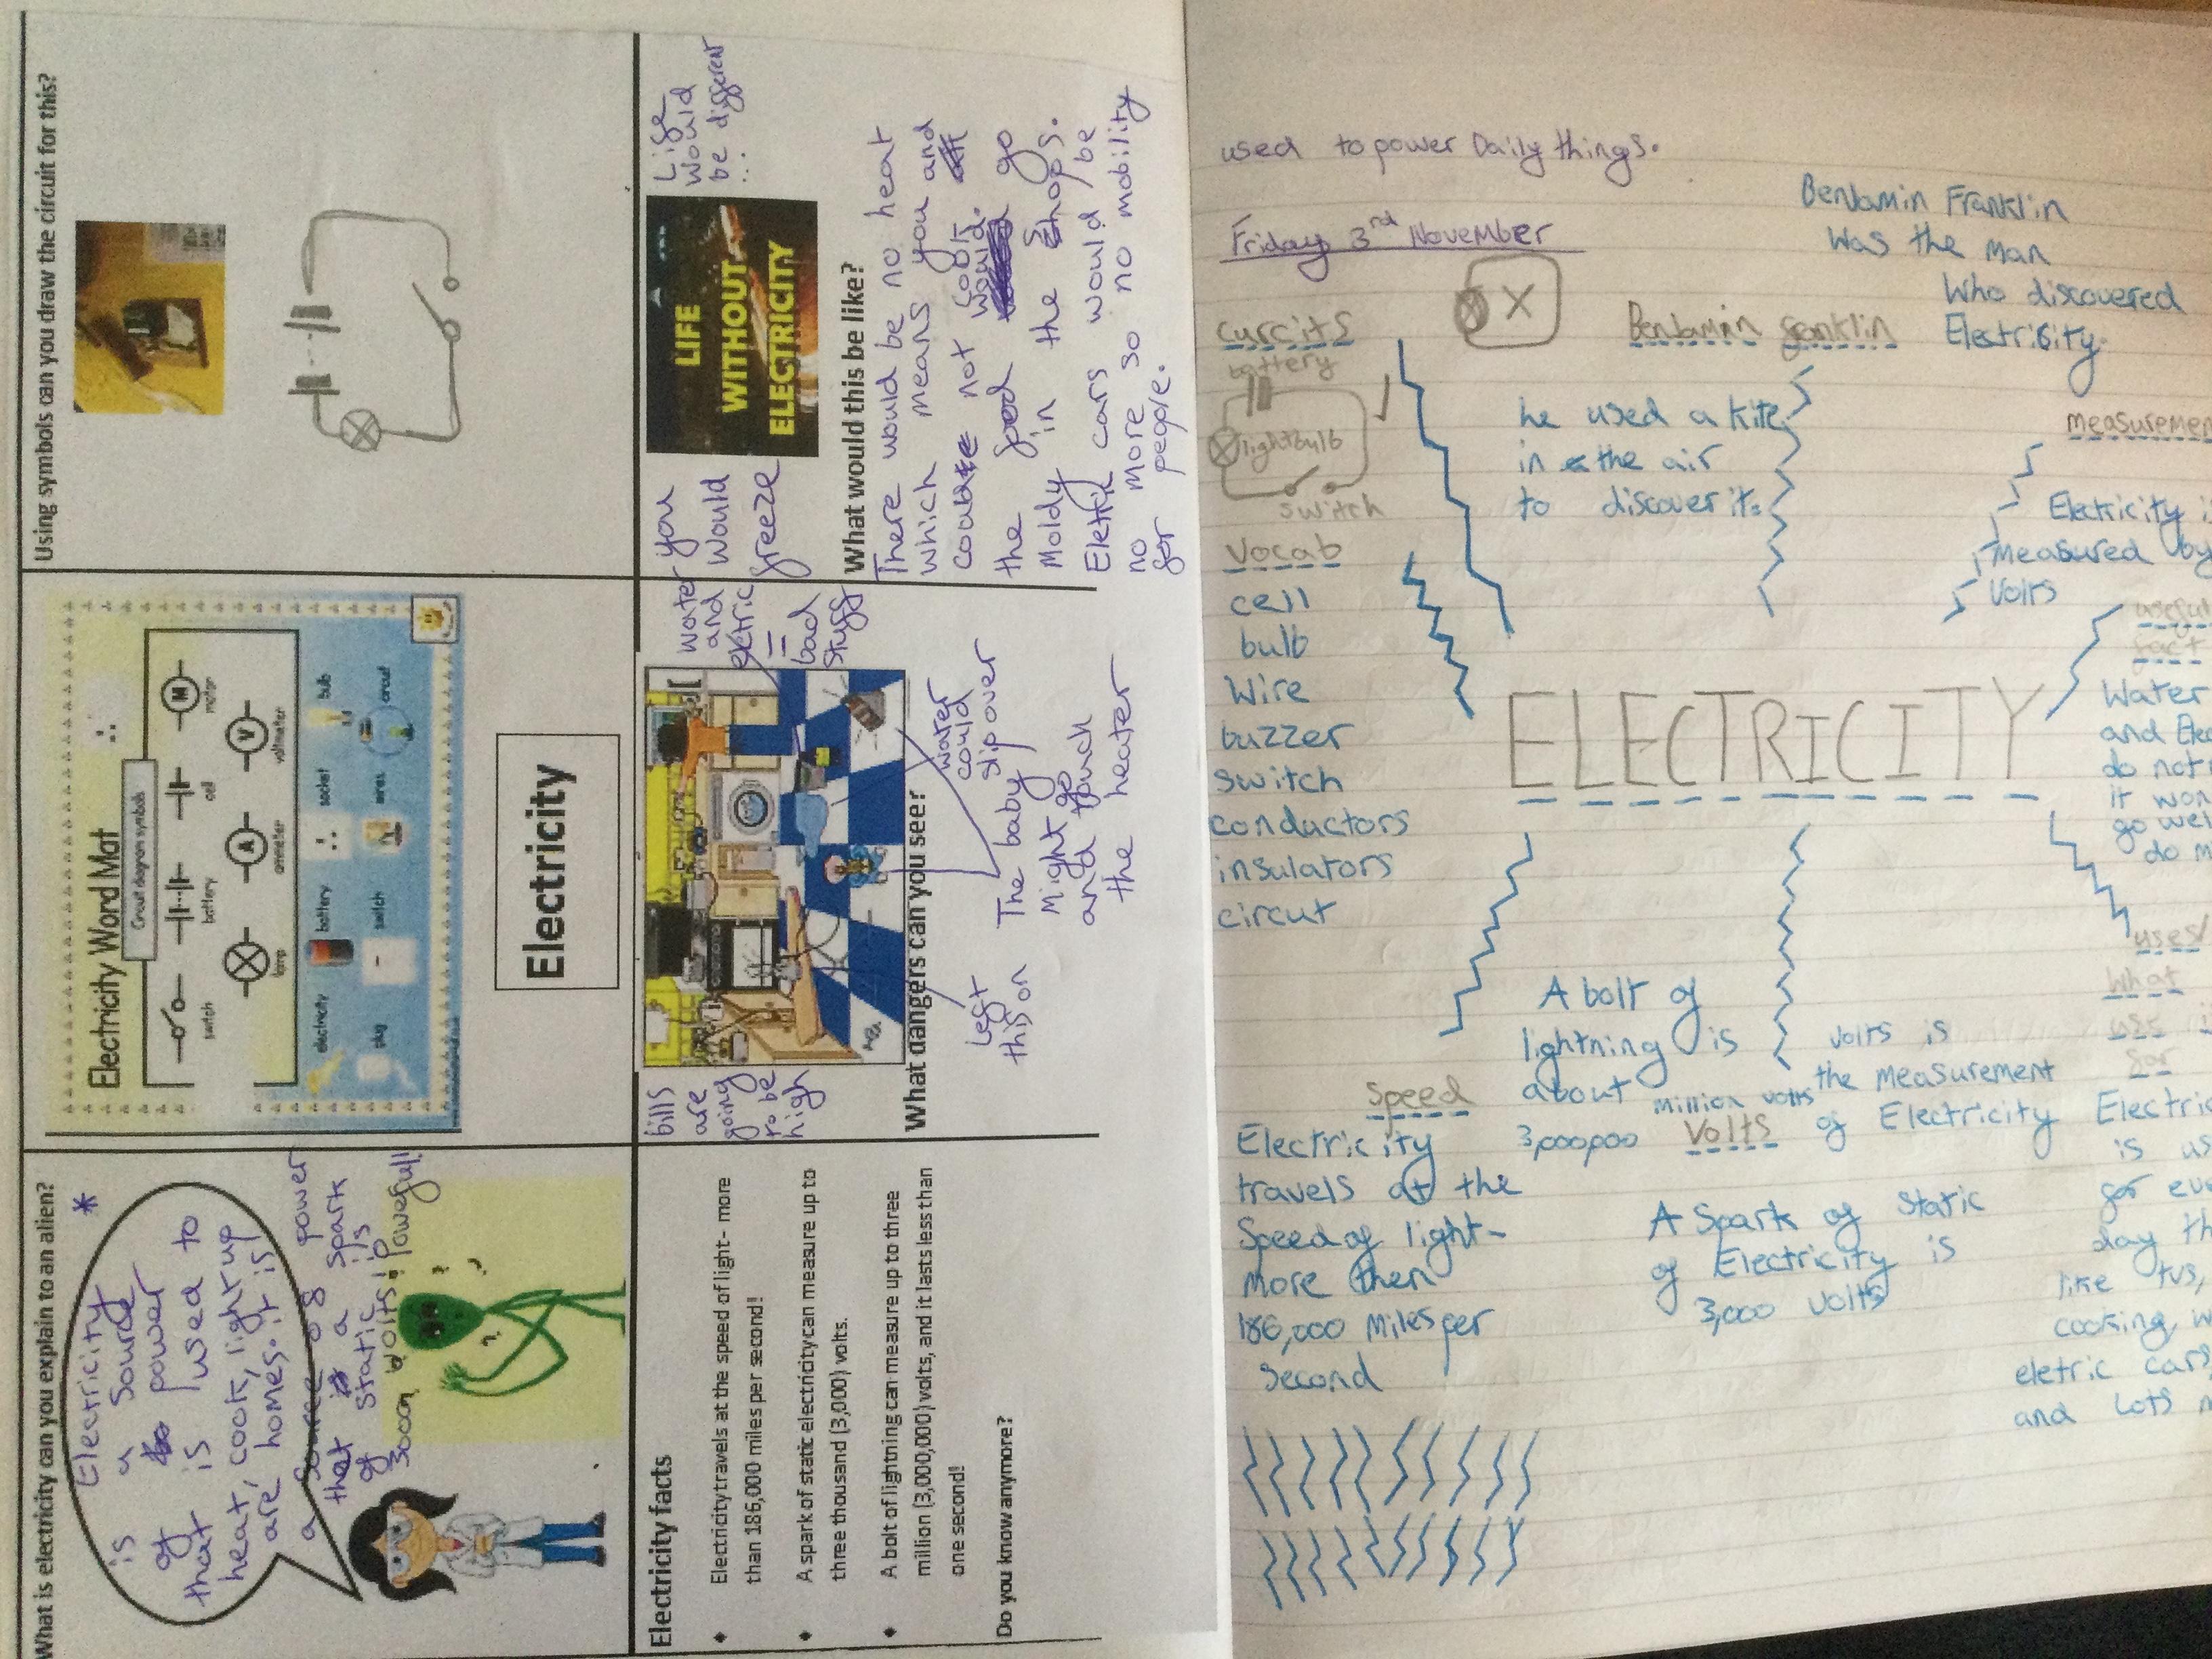 What is electricity can you explain to an alien?
Electricity *
is a source
of power
that is used to
heat, cook, light up
are homes. it is
a source of power
that is a spark
of static is
3000 volts! Powerful!
Electricity Word Mat
Circuit diagram symbols
switch
battery
cell
motor
lamp
ammeter
voltmeter
electricity
battery
socket
bulb
plug
switch
wires
circuit
Electricity
Using symbols can you draw the circuit for this?
Electricity facts
Electricity travels at the speed of light- more
than 186,000 miles per second!
A spark of static electricity can measure up to
three thousand (3,000) volts.
A bolt of lightning can measure up to three
million (3,000,000) volts, and it lasts less than
one second!
Do you know anymore?
bills
are
going
to be
high
water
and
eletric
=
bad
stuff
What dangers can you see?
Left
this on
water
could
slip over
The baby
might go
and touch
the heater
you
would
freeze
LIFE
WITHOUT
ELECTRICITY
Life
would
be different
...
What would this be like?
There would be no heat
which means you and
not cook
the food would go
Moldy in the shops.
Eletric cars would be
no more so no mobility
for people.
used to power Daily things.
Friday 3rd November
Benjamin Franklin
was the man
who discovered
Electricity.
curcits
battery
lightbulb
switch
Benjamin franklin
he used a kite
in the air
to discover it.
measuremen
Electricity i
measured by
Volts
Vocab
cell
bulb
wire
buzzer
switch
conductors
insulators
circut
ELECTRICITY
useful
fact
Water
and Elec
do not
it won
go well
do m
uses/
what
use i
for
Electric
is us
for eve
day th
like tvs,
cooking, w
eletric cars
and lots m
Speed
Electricity
travels at the
Speed of light-
more then
186,000 miles per
second
A bolt of
lightning is
about
3,000,000 million volts
Volts
volts is
the measurement
of Electricity
A Spark of static
of Electricity is
3,000 volts